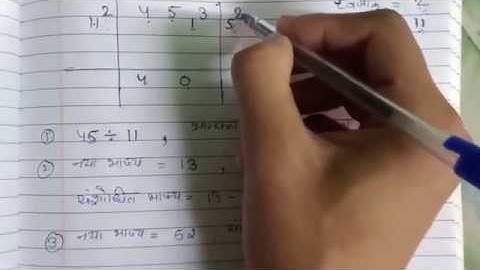 11² 4 5 3 2
1 5
11
4 0
① 45 ÷ 11 ,
② नया भाज्य = 13 ,
संशोधित भाज्य = 13 -
③ नया भाज्य = 52 ,